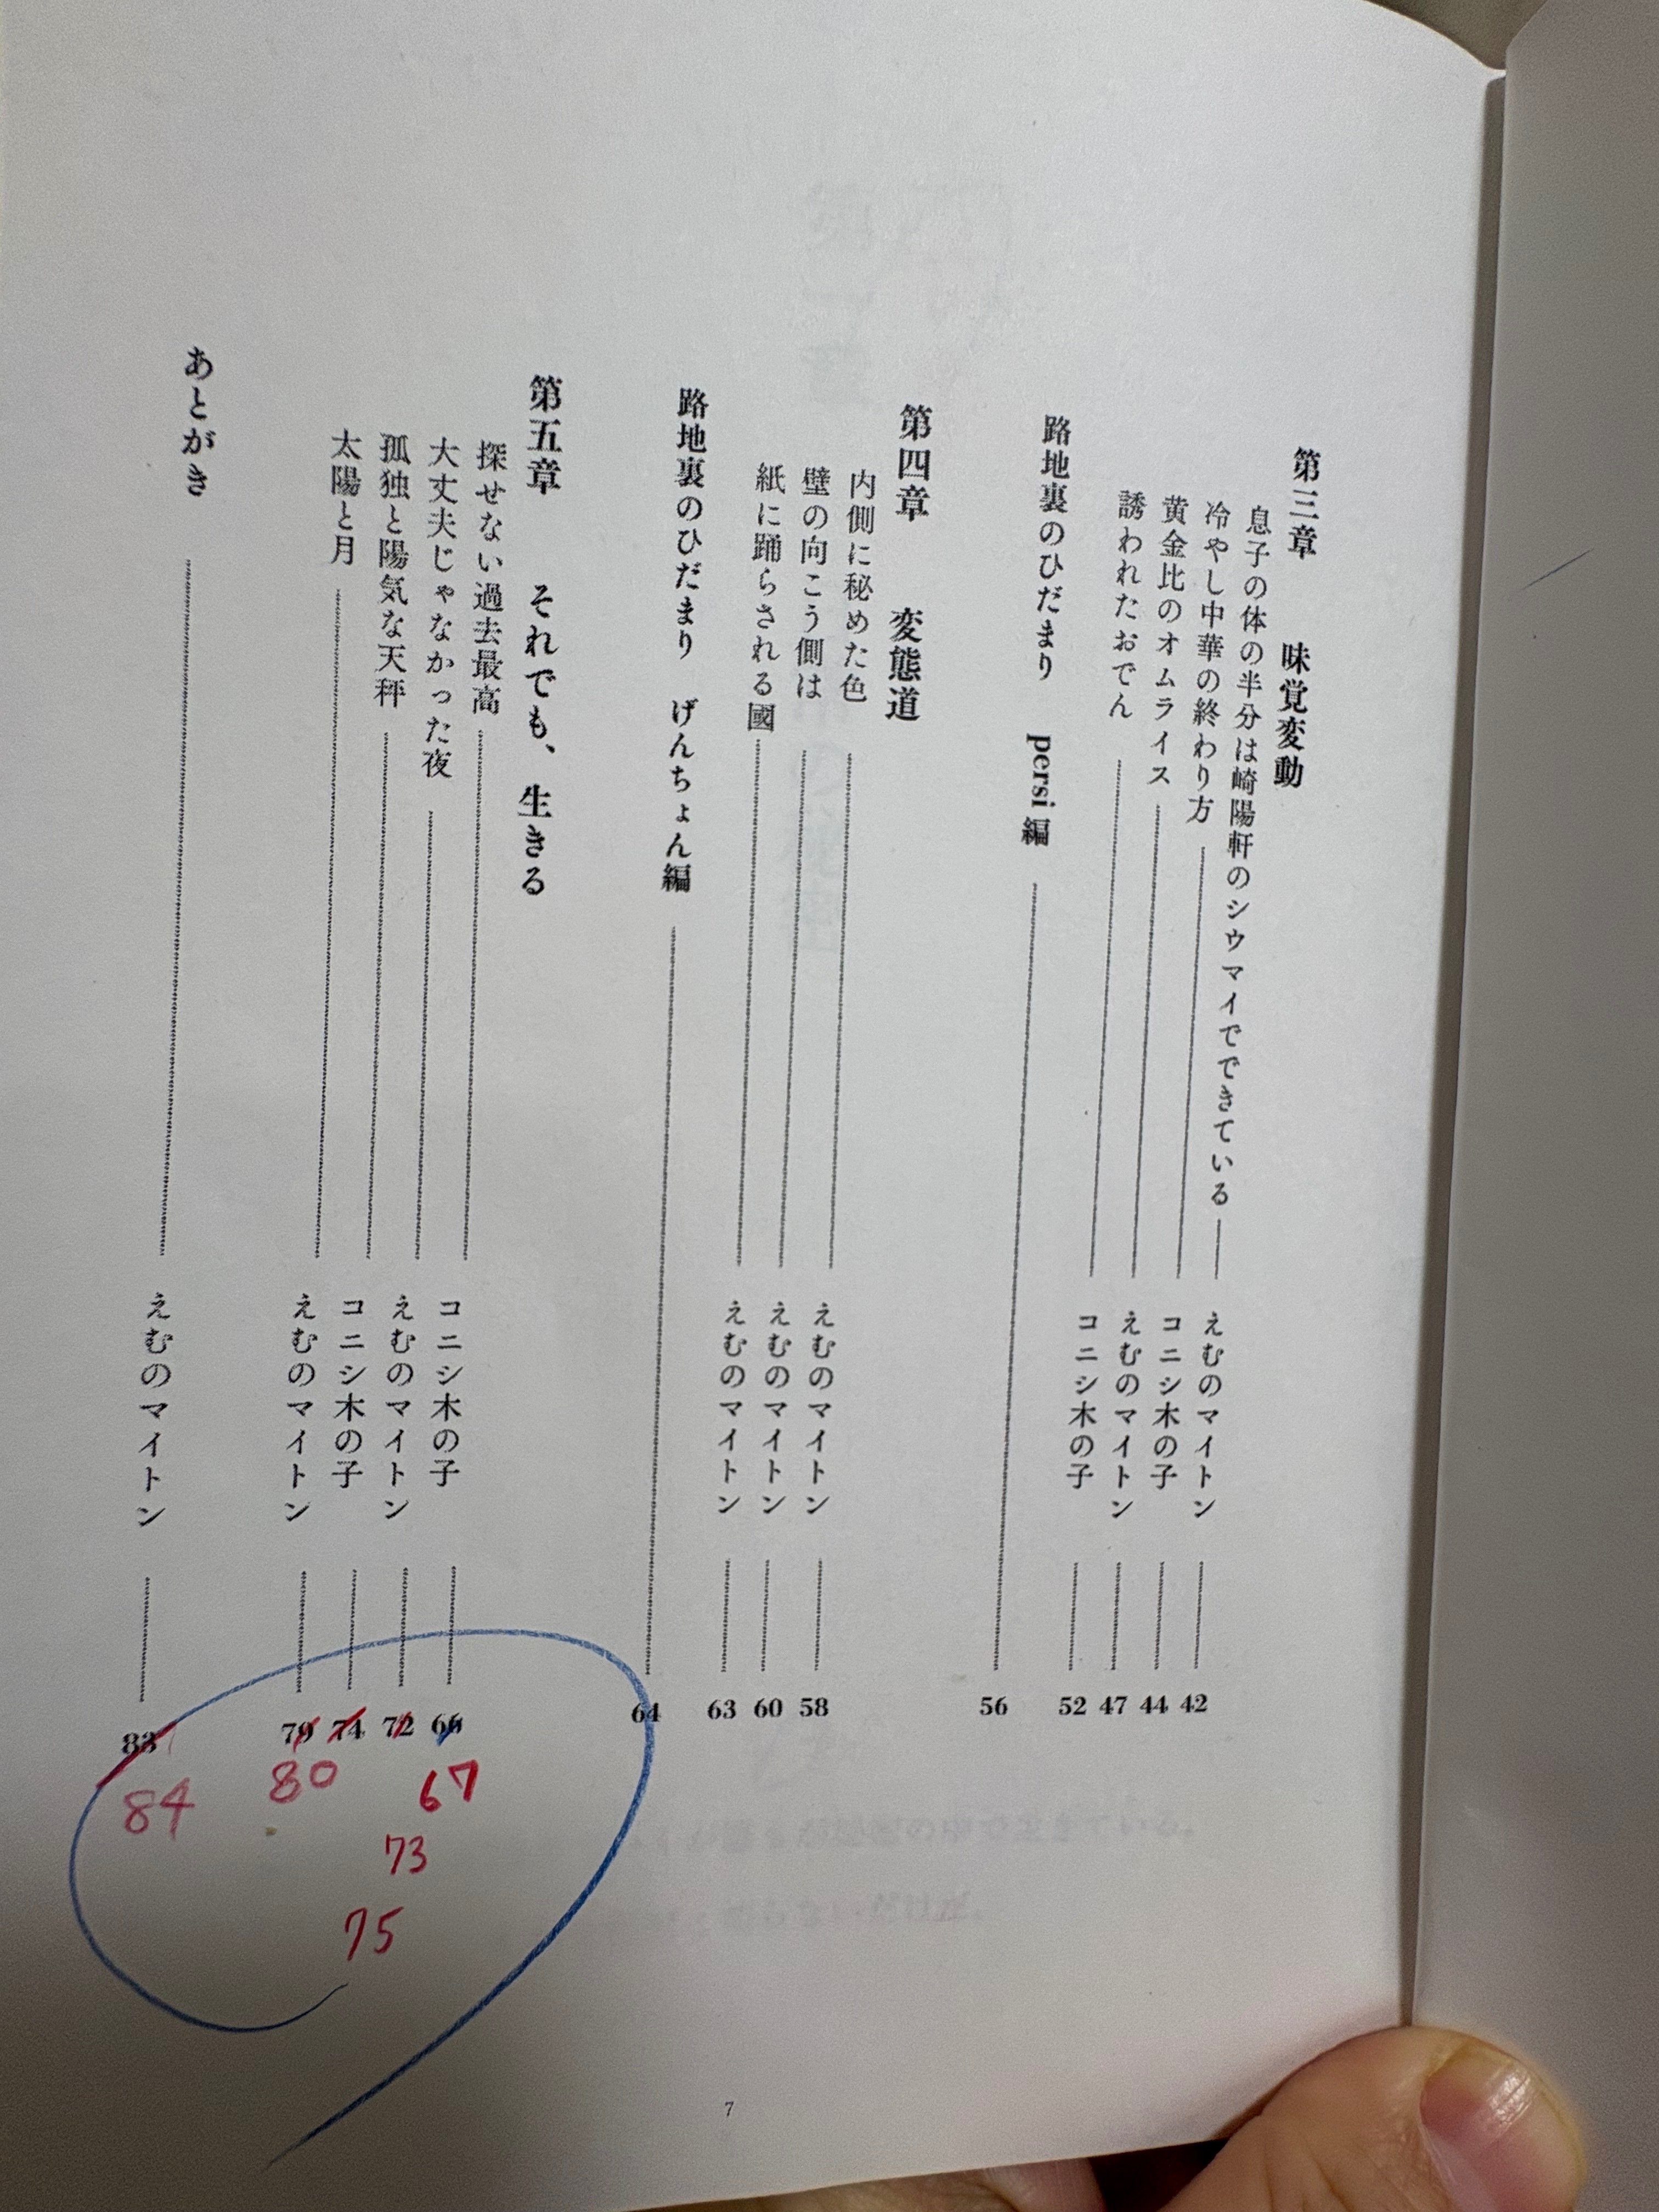 第三章　味覚変動
息子の体の半分は崎陽軒のシウマイでできている えむのマイトン 42
冷やし中華の終わり方 コニシ木の子 44
黄金比のオムライス えむのマイトン 47
誘われたおでん コニシ木の子 52
路地裏のひだまり　persi編 56
第四章　変態道
内側に秘めた色 えむのマイトン 58
壁の向こう側は えむのマイトン 60
紙に踊らされる國 えむのマイトン 63
路地裏のひだまり　げんちょん編 64
第五章　それでも、生きる
探せない過去最高 コニシ木の子 66
67
大丈夫じゃなかった夜 えむのマイトン 72
73
孤独と陽気な天秤 コニシ木の子 74
75
太陽と月 えむのマイトン 79
80
あとがき えむのマイトン 83
84
7